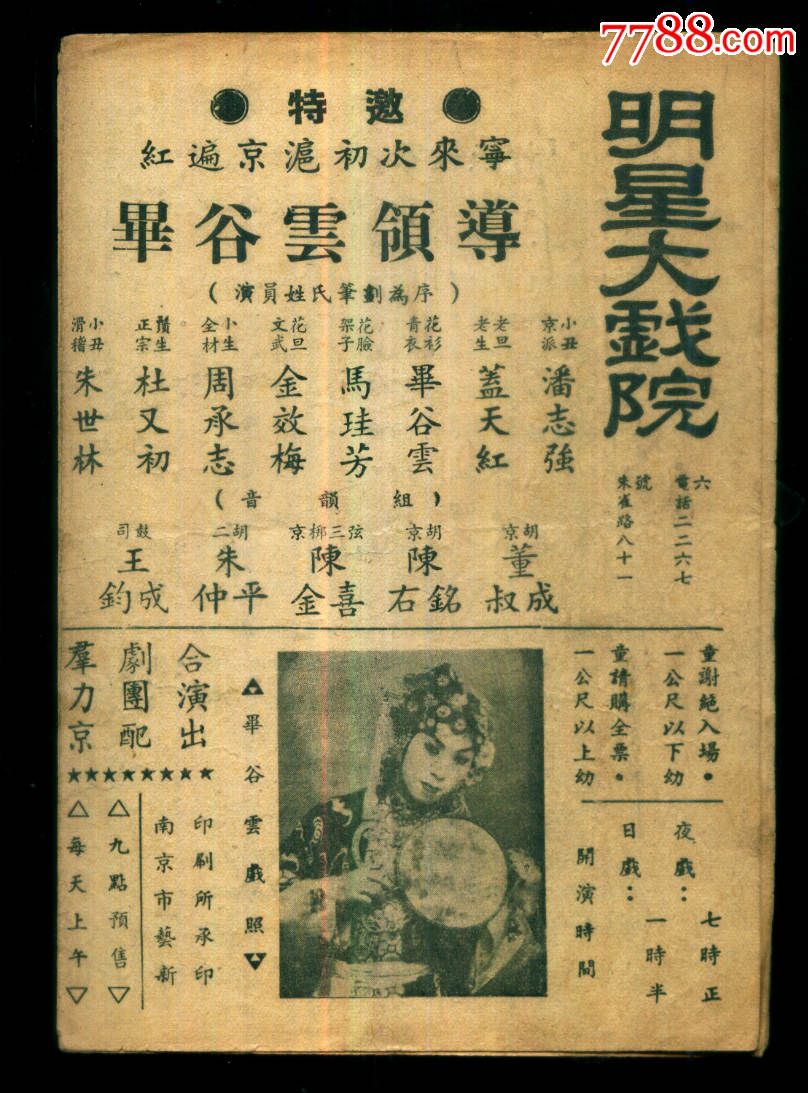 7788.com
明星大戲院
朱雀路八十一
號
電話二二六七
六
特邀
紅遍京滬初次來寧
畢谷雲領導
(演員姓氏筆劃為序)
滑稽小丑 正宗鬚生 全材小生 文武花旦 架子花臉 青衣花衫 老生老旦 京派小丑
朱世林 杜又初 周承志 金效梅 馬珪芳 畢谷雲 蓋天紅 潘志強
(音韻組)
司鼓 二胡 京梆三弦 京胡 京胡
王鈞成 朱仲平 陳金喜 陳右銘 董叔成
羣力京
劇團配
合演出
★★★★★★★★
△每天上午▽
△九點預售▽
南京市藝新
印刷所承印
▲畢谷雲戲照▼
一公尺以上幼
童請購全票。
一公尺以下幼
童謝絕入場。
開演時間
日戲：一時半
夜戲：七時正